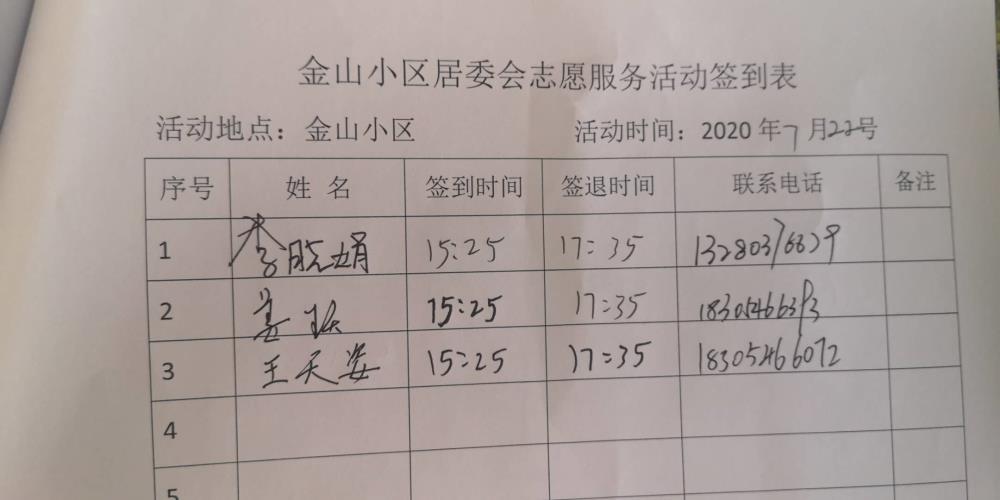 金山小区居委会志愿服务活动签到表
活动地点：金山小区 活动时间：2020年7月22号
序号 姓名 签到时间 签退时间 联系电话 备注
1 李晓娟 15:25 17:35
2 姜 15:25 17:35
3 王天姿 15:25 17:35 18305466072
4
5